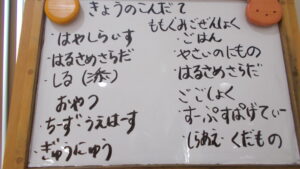 きょうのこんだて
・はやしらいす
はるさめさらだ
しる
おやつ
・ちーず・うえはーす
・ぎゅうにゅう
ももぐみごぜんしょく
・ごはん
やさいのにもの
はるさめさらだ
ごごしょく
・すーぷすぱげてぃー
・しらあえ・くだもの